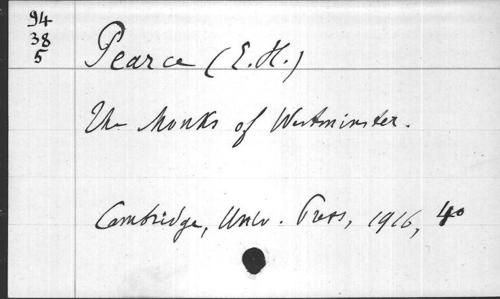 94
38
5
Pearce (E.H.)
The Monks of Westminster.
Cambridge, Univ. Press, 1916, 4o